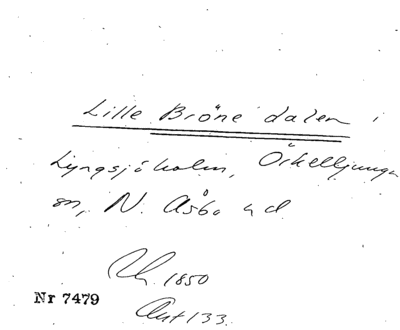 Lille Bröne dalen i
Lyngsjöholm, Örkelljunga
sn, N. Åsbo hd
Rk. 1850
Ant 133.
Nr 7479